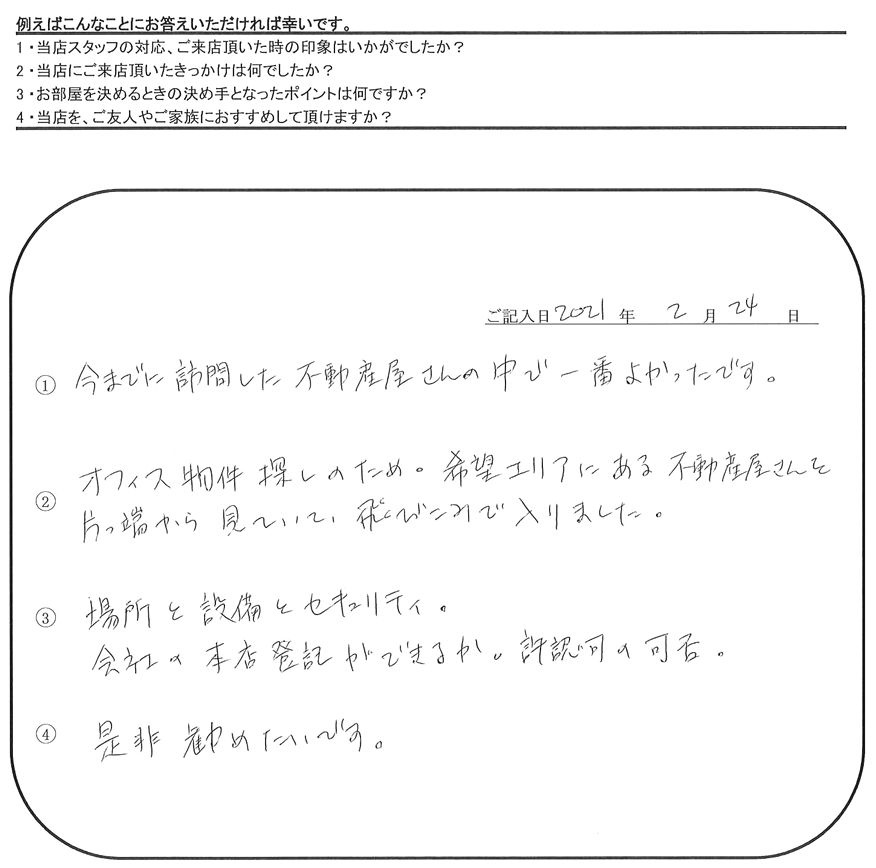 例えばこんなことにお答えいただければ幸いです。
1・当店スタッフの対応、ご来店頂いた時の印象はいかがでしたか？
2・当店にご来店頂いたきっかけは何でしたか？
3・お部屋を決めるときの決め手となったポイントは何ですか？
4・当店を、ご友人やご家族におすすめして頂けますか？
ご記入日 2021 年 2 月 24 日
① 今までに訪問した不動産屋さんの中で一番よかったです。
② オフィス物件探しのため。希望エリアにある不動産屋さんを
片っ端から見ていて、飛びこみで入りました。
③ 場所と設備とセキュリティ。
会社の本店登記ができるか。許認可の可否。
④ 是非勧めたいです。